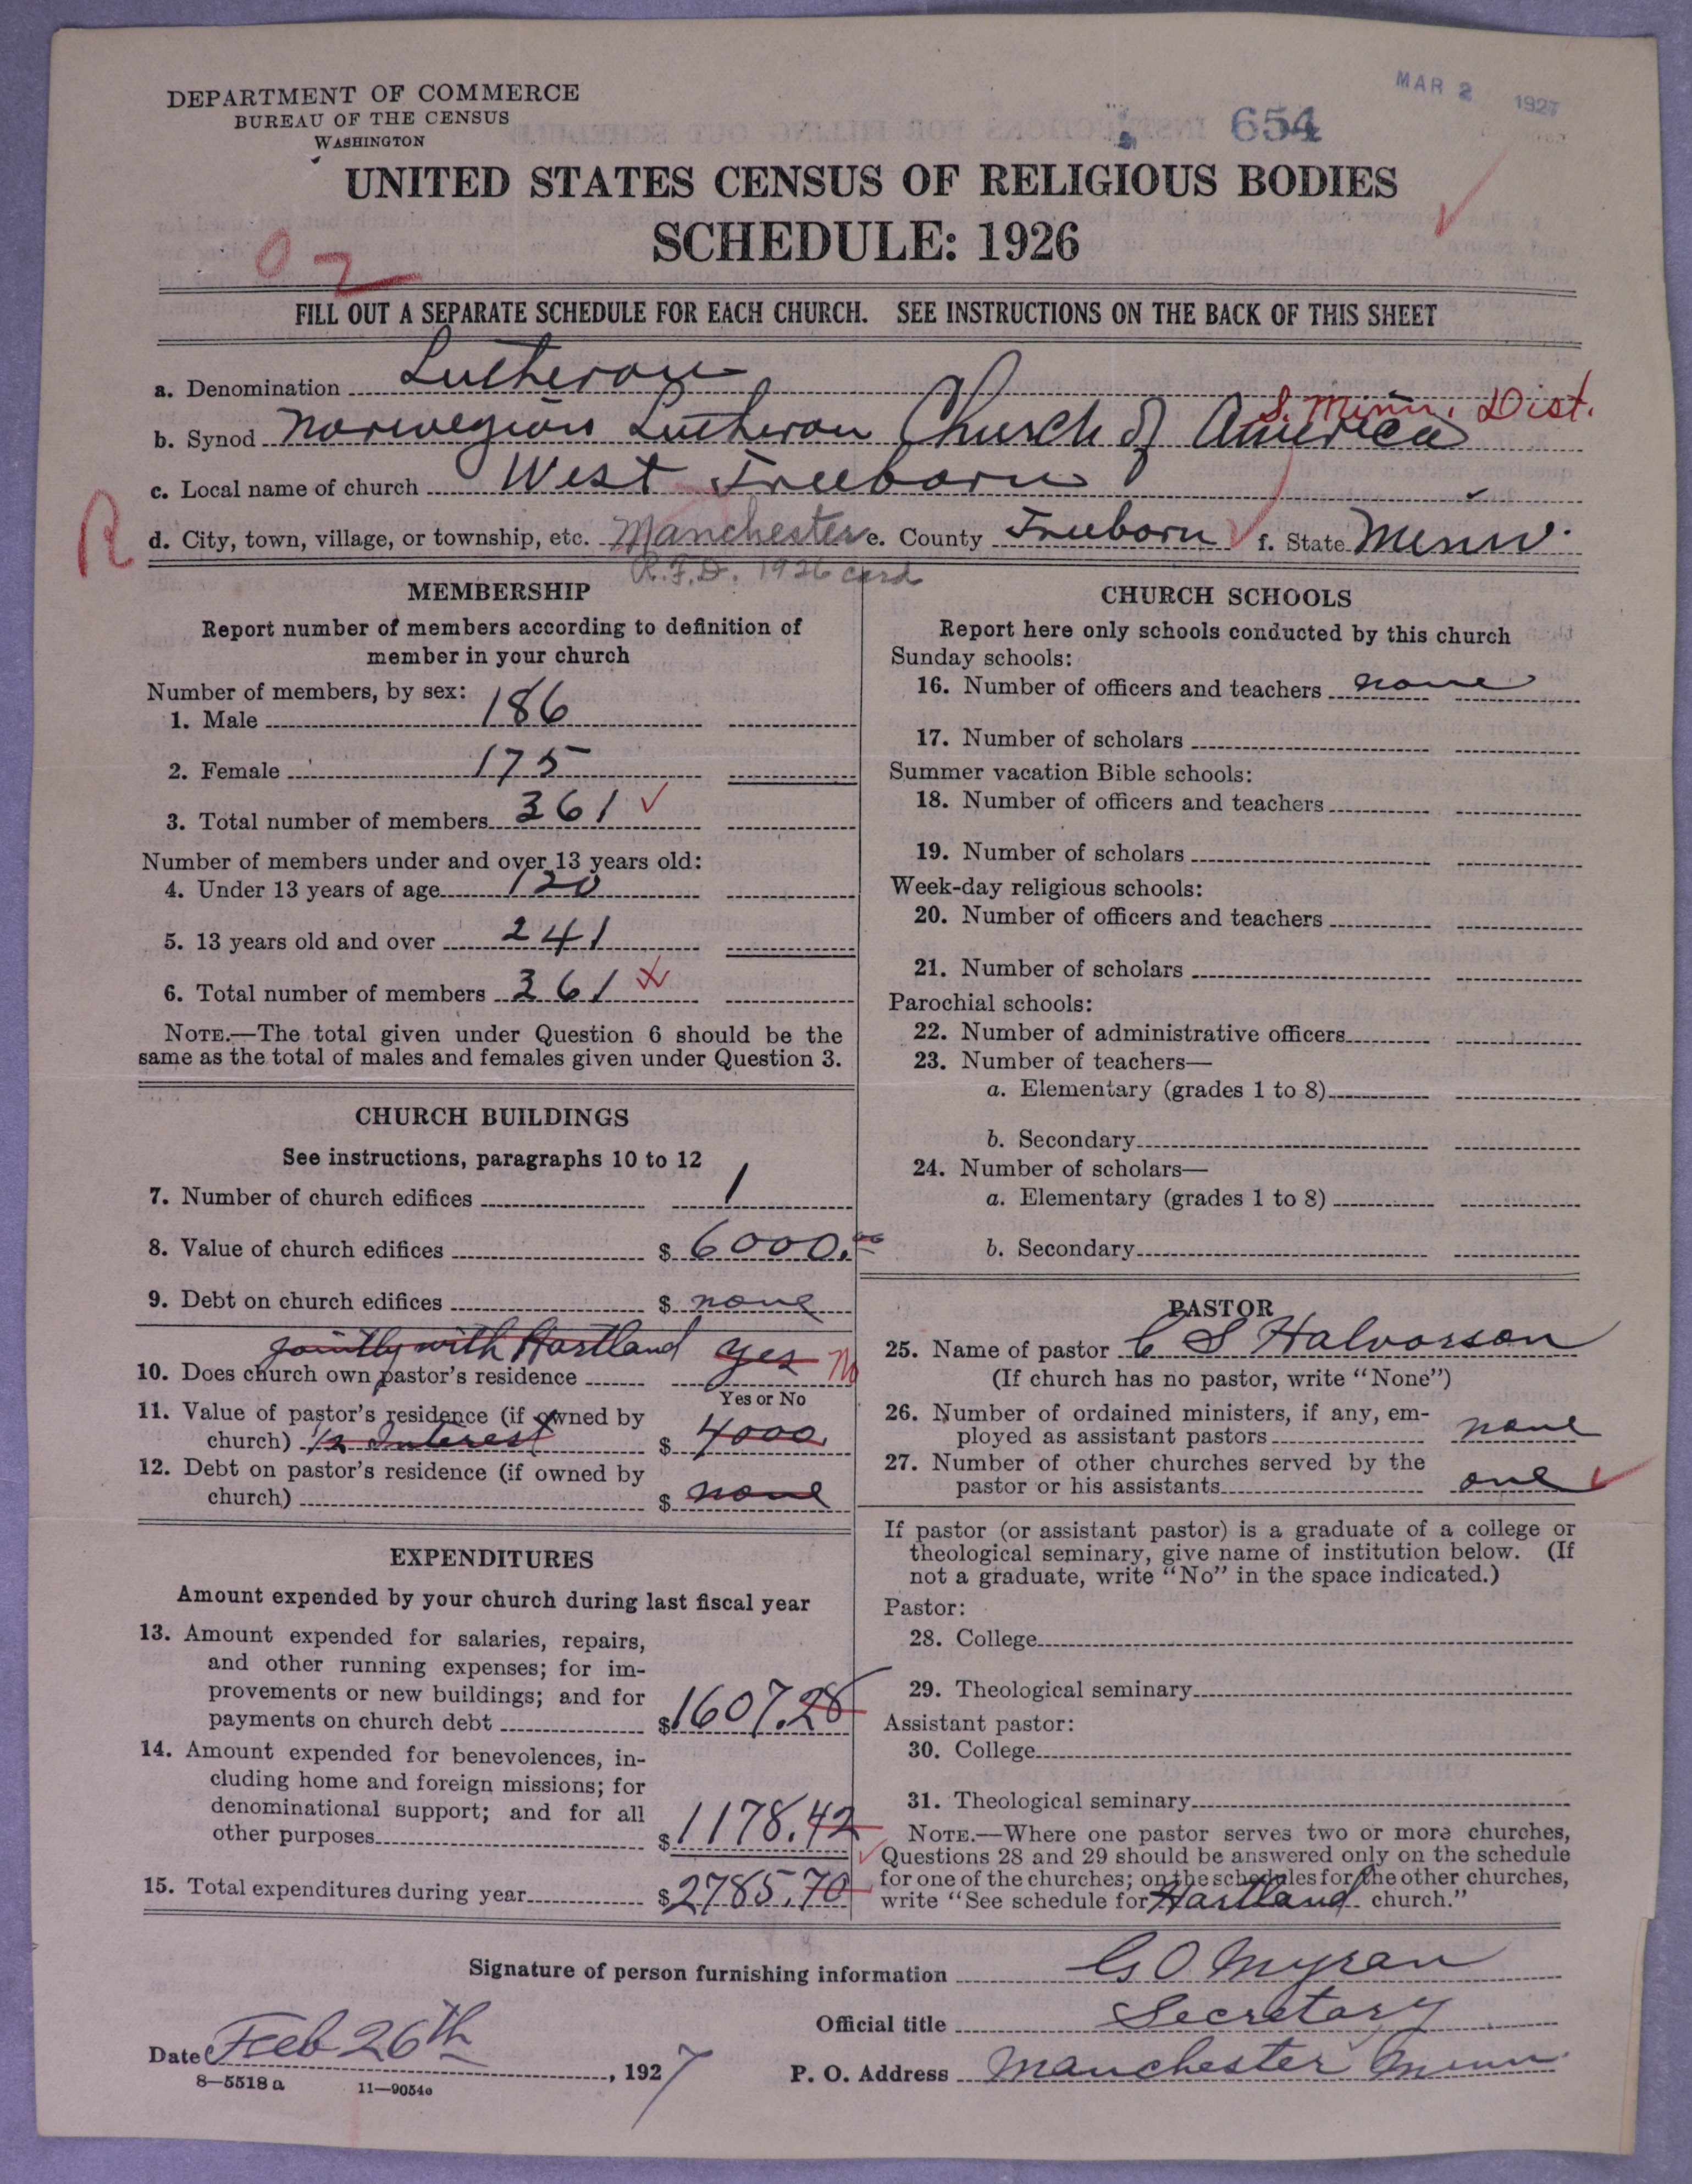 MAR 2 1927
DEPARTMENT OF COMMERCE
BUREAU OF THE CENSUS
WASHINGTON
654
UNITED STATES CENSUS OF RELIGIOUS BODIES
SCHEDULE: 1926
02
FILL OUT A SEPARATE SCHEDULE FOR EACH CHURCH. SEE INSTRUCTIONS ON THE BACK OF THIS SHEET
a. Denomination Lutheran
S. Minn. Dist.
b. Synod Norwegian Lutheran Church of America
c. Local name of church West Freeborn
R
d. City, town, village, or township, etc. Manchester e. County Freeborn f. State Minn.
R.F.D. 1926 card
MEMBERSHIP
Report number of members according to definition of
member in your church
Number of members, by sex:
1. Male 186
2. Female 175
3. Total number of members 361
Number of members under and over 13 years old:
4. Under 13 years of age 120
5. 13 years old and over 241
6. Total number of members 361
NOTE.—The total given under Question 6 should be the
same as the total of males and females given under Question 3.
CHURCH BUILDINGS
See instructions, paragraphs 10 to 12
7. Number of church edifices 1
8. Value of church edifices $ 6000.00
9. Debt on church edifices $ none
jointly with Hartland yes No
10. Does church own pastor's residence
Yes or No
11. Value of pastor's residence (if owned by
church) 1/2 Interest $ 4000
12. Debt on pastor's residence (if owned by
church) $ none
EXPENDITURES
Amount expended by your church during last fiscal year
13. Amount expended for salaries, repairs,
and other running expenses; for im-
provements or new buildings; and for
payments on church debt $1607.28
14. Amount expended for benevolences, in-
cluding home and foreign missions; for
denominational support; and for all
other purposes $1178.42
15. Total expenditures during year $2785.70
CHURCH SCHOOLS
Report here only schools conducted by this church
Sunday schools:
16. Number of officers and teachers none
17. Number of scholars
Summer vacation Bible schools:
18. Number of officers and teachers
19. Number of scholars
Week-day religious schools:
20. Number of officers and teachers
21. Number of scholars
Parochial schools:
22. Number of administrative officers
23. Number of teachers—
a. Elementary (grades 1 to 8)
b. Secondary
24. Number of scholars—
a. Elementary (grades 1 to 8)
b. Secondary
PASTOR
25. Name of pastor C S Halvorson
(If church has no pastor, write "None")
26. Number of ordained ministers, if any, em-
ployed as assistant pastors none
27. Number of other churches served by the
pastor or his assistants one
If pastor (or assistant pastor) is a graduate of a college or
theological seminary, give name of institution below. (If
not a graduate, write "No" in the space indicated.)
Pastor:
28. College
29. Theological seminary
Assistant pastor:
30. College
31. Theological seminary
NOTE.—Where one pastor serves two or more churches,
Questions 28 and 29 should be answered only on the schedule
for one of the churches; on the schedules for the other churches,
write "See schedule for Hartland church."
Signature of person furnishing information G O Myran
Official title Secretary
Date Feb 26th, 1927
P. O. Address Manchester Minn.
8—5518 a 11—9054e